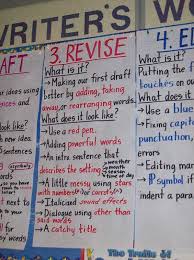 WRITER'S WO
AFT
3. REVISE
4. ED
What is it?
→Making our first draft
better by adding, taking
away, or rearranging words.
What does it look like?
→Use a red pen.
→Adding powerful words
→An intra sentence that
describes the setting
→A little messy using stars
with numbers (for carrots)
→Italicized sound effects
→Dialogue using other than
said words
→A catchy title
r ideas using
ces and
look like?
new idea
ntences
What is it?
Putting the f
touches on
What does it
→Use a blue
→Fixing capit
punctuation,
error
→Editing mar
→¶ symbol if
indent a para
The Traits of